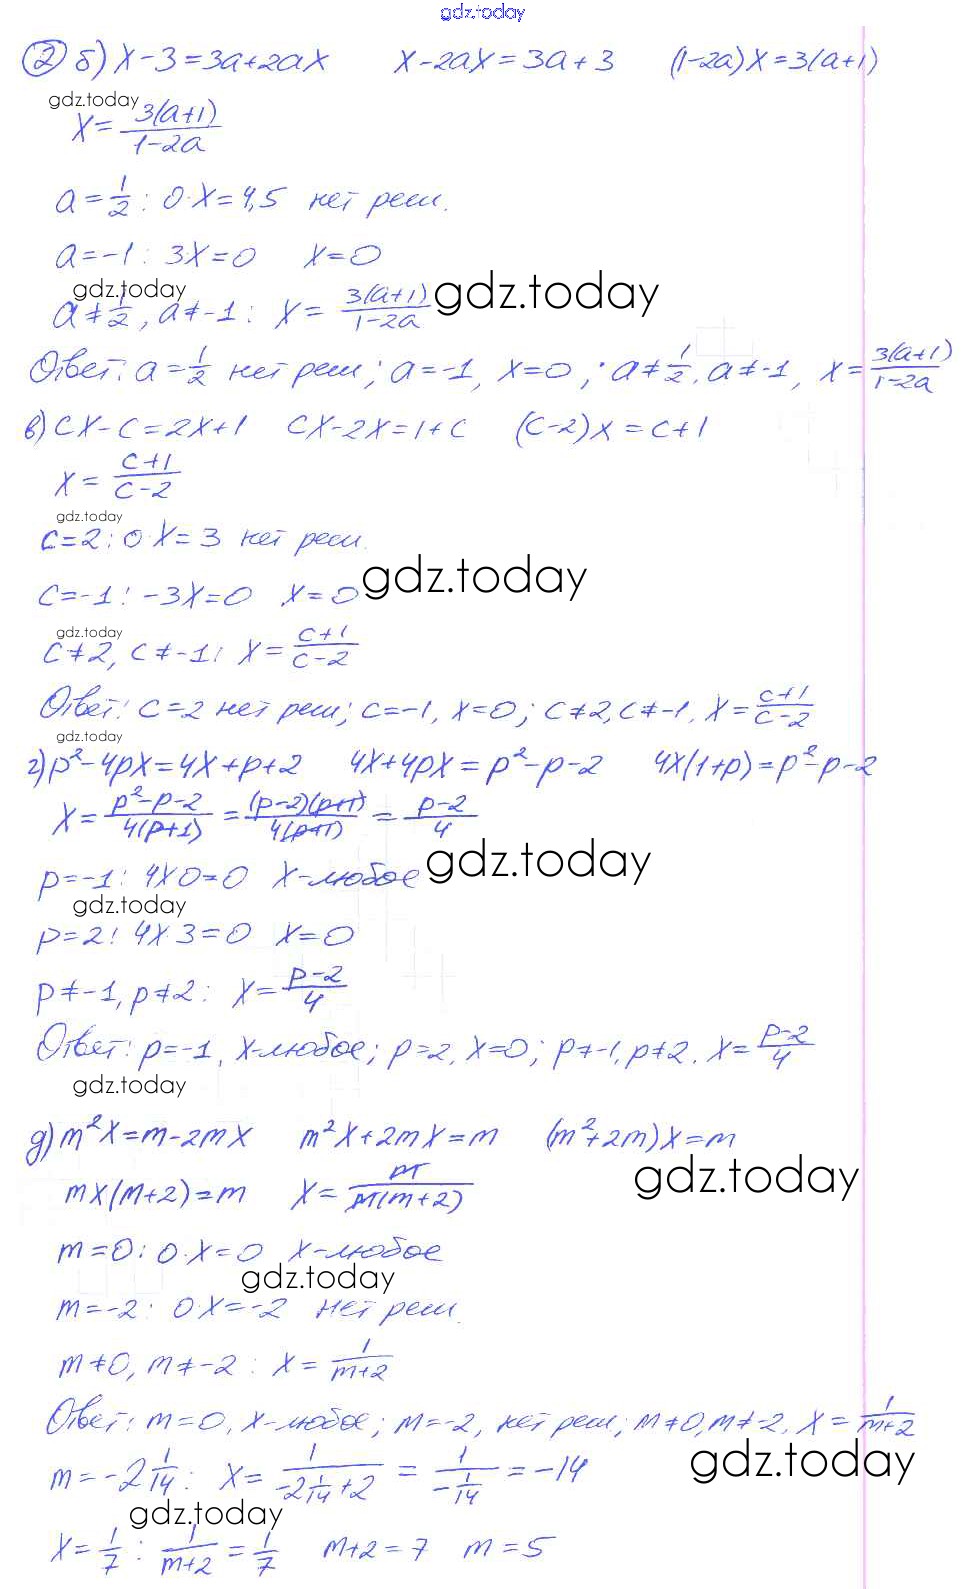 gdz.today
② б) x-3=3a+2ax x-2ax=3a+3 (1-2a)x=3(a+1)
gdz.today
x=3(a+1)/1-2a
a=1/2: 0·x=4,5 нет реш.
a=-1: 3x=0 x=0
gdz.today
a≠1/2, a≠-1: x=3(a+1)/1-2a gdz.today
Ответ: a=1/2 нет реш; a=-1, x=0; a≠1/2, a≠-1, x=3(a+1)/1-2a
в) cx-c=2x+1 cx-2x=1+c (c-2)x=c+1
x=c+1/c-2
gdz.today
c=2: 0·x=3 нет реш.
c=-1: -3x=0 x=0 gdz.today
gdz.today
c≠2, c≠-1: x=c+1/c-2
Ответ: c=2 нет реш; c=-1, x=0; c≠2, c≠-1, x=c+1/c-2
gdz.today
г) p²-4px=4x+p+2 4x+4px=p²-p-2 4x(1+p)=p²-p-2
x=p²-p-2/4(p+1)=(p-2)(p+1)/4(p+1)=p-2/4
gdz.today
p=-1: 4x·0=0 x-любое
gdz.today
p=2: 4x·3=0 x=0
p≠-1, p≠2: x=p-2/4
Ответ: p=-1, x-любое; p=2, x=0; p≠-1, p≠2, x=p-2/4
gdz.today
д) m²x=m-2mx m²x+2mx=m (m²+2m)x=m
gdz.today
mx(m+2)=m x=m/m(m+2)
m=0: 0·x=0 x-любое
gdz.today
m=-2: 0·x=-2 нет реш.
m≠0, m≠-2: x=1/m+2
Ответ: m=0, x-любое; m=-2, нет реш; m≠0, m≠-2, x=1/m+2
gdz.today
m=-2 1/14: x=1/-2 1/14+2=1/-1/14=-14
gdz.today
x=1/7: 1/m+2=1/7 m+2=7 m=5